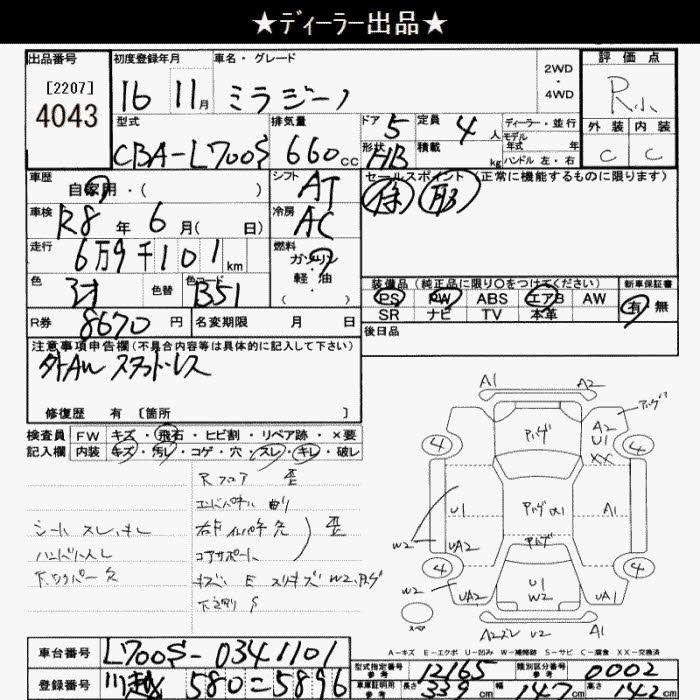 ★ディーラー出品★
出品番号
[2207]
4043
初度登録年月
16 11月
車名・グレード
ミラジーノ
2WD
・
4WD
評価点
R小
外装 内装
C C
型式
CBA-L700S
排気量
660cc
ドア 5
形状 HB
定員 4人
積載 kg
ディーラー・並行
モデル年式 年
ハンドル 左・右
車歴
自家用・( )
シフト
AT
セールスポイント(正常に機能するものに限ります)
車検
R8年 6月( 日)
冷房
AC
走行
6万9千101km
燃料
ガソリン
・
軽油
( ・ )
色
色替
色コード
B51
装備品(純正品に限り○をつけてください)
新車保証書
PS PW ABS エアB AW
SR ナビ TV 本革
有・無
R券
8670円
名変期限 月 日
後日品
注意事項申告欄(不具合内容等は具体的に記入して下さい)
外AW スタッドレス
修復歴 有 [箇所 ]
検査員記入欄
FW キズ・飛石・ヒビ割・リペア跡・×要
内装 キズ・汚レ・コゲ・穴・スレ・キレ・破レ
Rフロア 歪
エンドパネル 曲リ
コアサポート
歪
シート スレ、キレ
A1 A2
アハゲ
A2
U1
XX
4 4
U1
A1
W2
UA2
U1
W2
4 4
W2
UA2
UA1
スペア
A2ズレ U2 A1
A-キズ E-エクボ U-凹み W-補修跡 S-サビ C-腐食 XX-交換済
車台番号
L700S-0341101
登録番号
川越 580 = 5896
型式指定番号
参考
12165
類別区分番号
参考
0002
車庫証明用
参考
長さ 339cm 幅 147cm 高さ 142cm